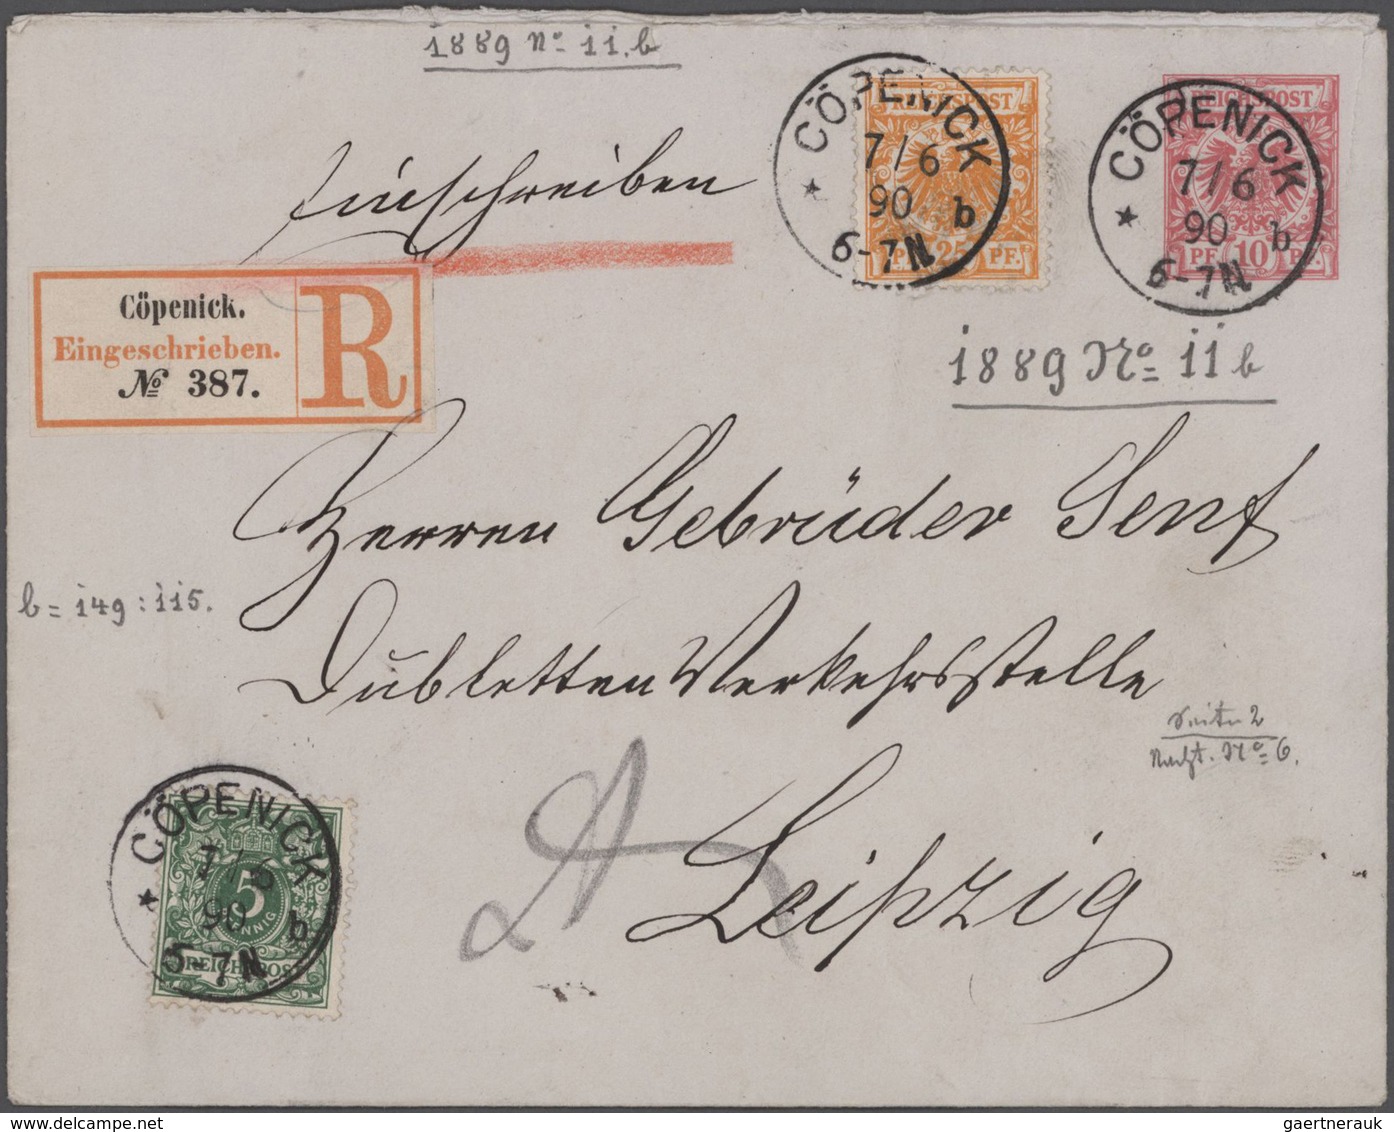 1889 No 11.b
Einschreiben
REICHSPOST
PF. 25 PF.
CÖPENICK
7/6
90 b
6-7N
REICHSPOST
PF. 10 PF.
CÖPENICK
7/6
90 b
6-7N
Cöpenick.
Eingeschrieben.
№ 387.
R
1889 No 11 b
Herren Gebrüder Senf
b = 149 : 115.
Dubletten Verkehrsstelle
Seite 2
No 6.
Leipzig
5
PFENNIG
REICHSPOST
CÖPENICK
7/6
90 b
6-7N
delcampe.net
gaertnerauk